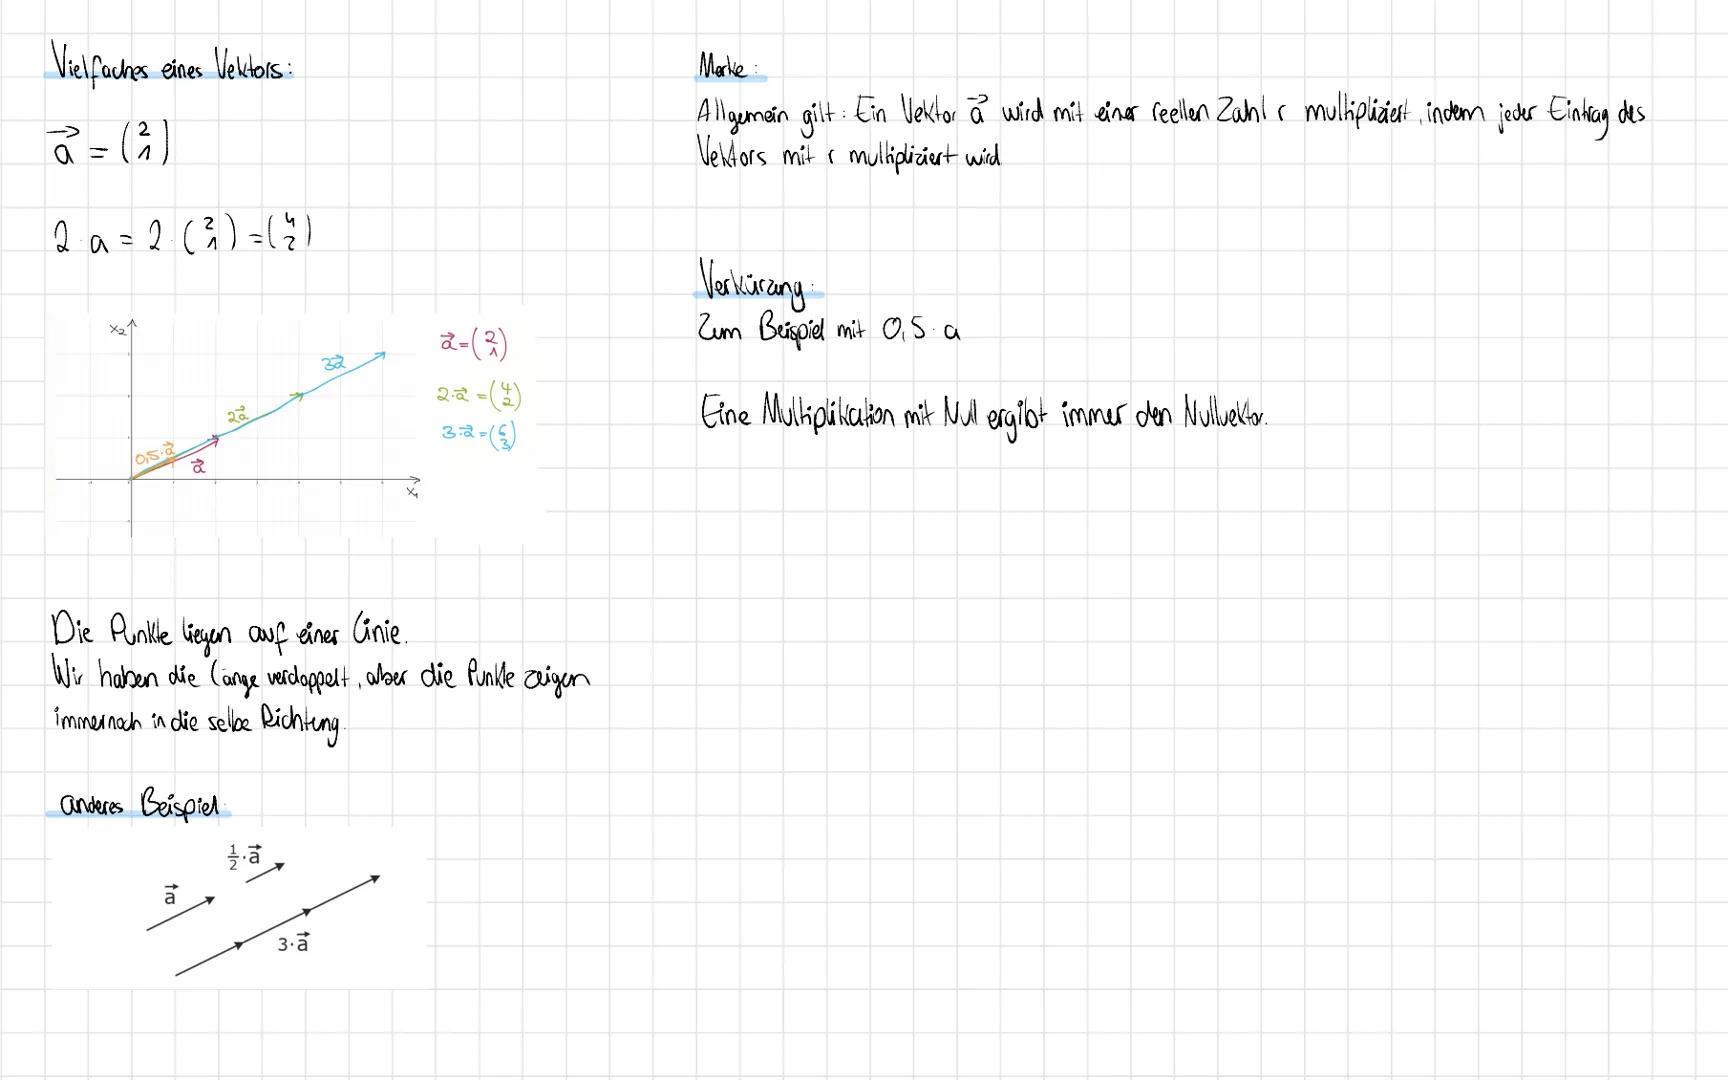 Vielfaches eines Vektors:
a⃗ = (2 1)
2 · a = 2 · (2 1) = (4 2)
x₂
3a⃗
2a⃗
0,5·a⃗
a⃗
x₁
a⃗ = (2 1)
2·a⃗ = (4 2)
3·a⃗ = (6 3)
Die Punkte liegen auf einer Linie.
Wir haben die Länge verdoppelt, aber die Punkte zeigen
immernoch in die selbe Richtung.
anderes Beispiel:
½·a⃗
a⃗
3·a⃗
Merke:
Allgemein gilt: Ein Vektor a⃗ wird mit einer reellen Zahl r multipliziert, indem jeder Eintrag des
Vektors mit r multipliziert wird
Verkürzung:
Zum Beispiel mit 0,5 · a
Eine Multiplikation mit Null ergibt immer den Nullvektor.